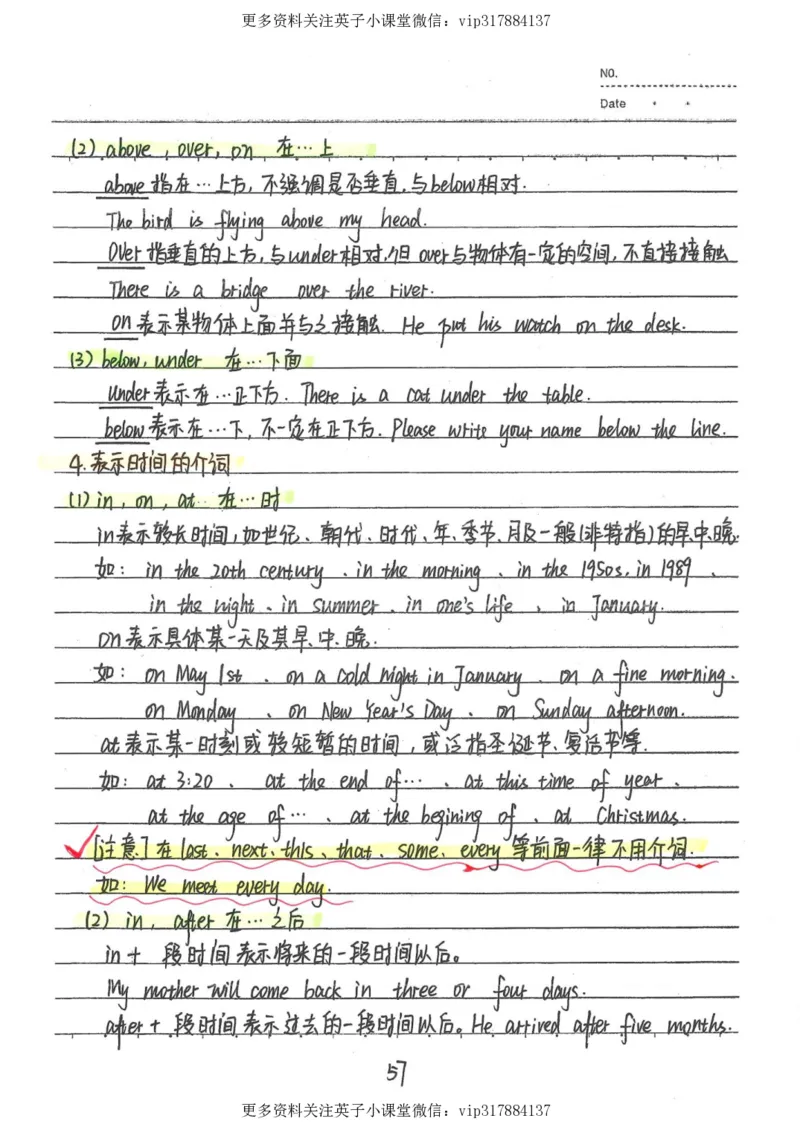 更多资料关注英子小课堂微信：vip317884137
NO.
Date
(2) above, over, on 在…上
above 指在…上方，不强调是否垂直，与below相对.
The bird is flying above my head.
over 指垂直的上方，与under相对，但over与物体有一定的空间，不直接接触
There is a bridge over the river.
on 表示某物体上面并与之接触. He put his watch on the desk.
(3) below, under 在…下面
under 表示在…正下方. There is a cat under the table.
below 表示在…下，不一定在正下方. Please write your name below the line.
4.表示时间的介词
(1) in, on, at 在…时
in表示较长时间，如世纪、朝代、时代、年、季节、月及一般(非特指)的早、中、晚.
如: in the 20th century 、in the morning 、in the 1950s、in 1989 、
in the night 、in summer 、in one's life 、in January.
on表示具体某一天及其早、中、晚.
如: on May 1st 、on a cold night in January 、on a fine morning.
on Monday 、on New Year's Day 、on Sunday afternoon.
at表示某一时刻或较短暂的时间，或泛指圣诞节、复活节等.
如: at 3:20 、at the end of… 、at this time of year 、
at the age of… 、at the begining of 、at Christmas.
[注意] 在last、next、this、that、some、every等前面一律不用介词.
如: We meet every day.
(2) in, after 在…之后
in + 段时间 表示将来的一段时间以后。
My mother will come back in three or four days.
after + 段时间 表示过去的一段时间以后。He arrived after five months.
57
更多资料关注英子小课堂微信：vip317884137